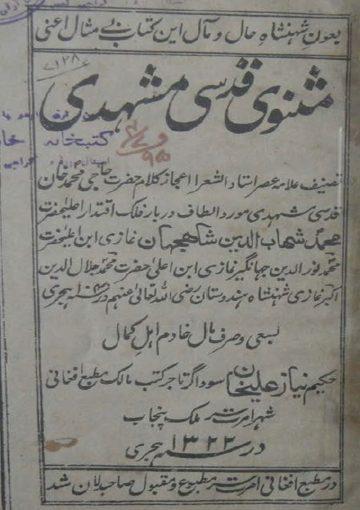 بعون شهنشاہ حال و مآل این کتاب بے مثال اعنی
۱۲۸
مثنوی قدسی مشہدی
کتبخانہ
تصنیف علامہ عصر استاد الشعرا اعجاز کلام حضرت حاجی محمد خان
قدسی مشہدی مورد الطاف دربار فلک اقتدار اعلیحضرت
محمد شهاب الدین شاهجهان غازی ابن اعلیحضرت
محمد نور الدین جہانگیر غازی ابن اعلی حضرت محمد جلال الدین
اکبر غازی شہنشاہ ہندوستان رضی اللہ تعالی عنہم در سنہ ہجری
بسعی و صرف مال خادم اہل کمال
حکیم نیاز علیخان سوداگر تاجر کتب مالک مطبع افغانی
شہر امرت سر ملک پنجاب
در سنہ ۱۳۲۲ ہجری
در مطبع افغانی امرت سر مطبوع و مقبول صاحبدلان شد